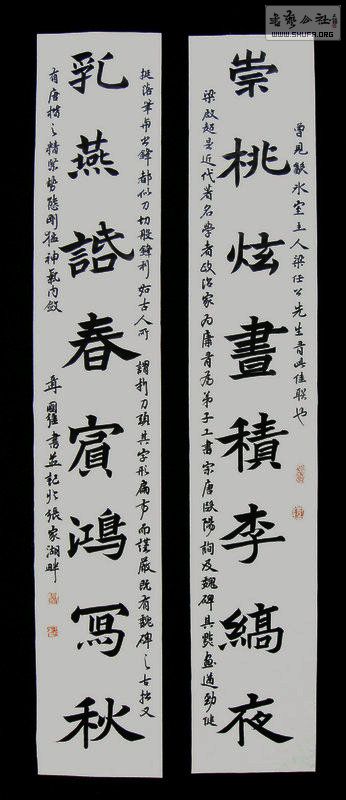 書藝公社
WWW.SHUFA.ORG
曾見飲冰室主人梁任公先生書此佳聯也
崇桃炫晝積李縞夜
梁啟超是近代著名學者政治家为康有为弟子工書宗唐歐陽詢及魏碑其點畫遒勁健
挺落筆与出鋒都似刀切般鋒利如古人所謂利刀頭其字形扁方而謹嚴既有魏碑之古拙又
乳燕誥春賓鴻寫秋
有唐楷之精緊勢態剛猛神氣内斂 國維書並記於張家湖畔